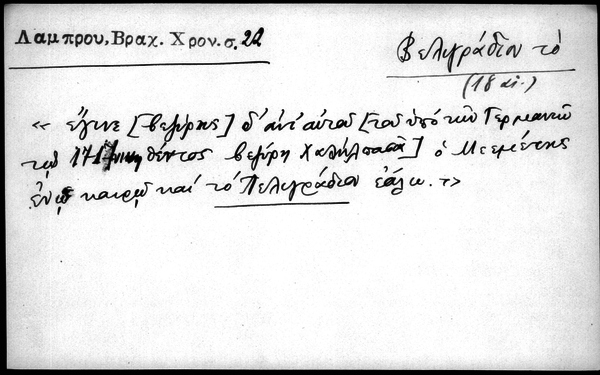 Λαμπρου, Βραχ. Χρον. σ. 22
Βελιγράδιον τὸ
(18 αἰ.)
« ἔγινε [βεζύρης] δ' ἀντ' αὐτοῦ [τοῦ ὑπὸ τῶν Γερμανῶν
τῷ 171 νικηθέντος βεζύρη Χαλὴλ πασᾶ] ὁ Μεεμέτης
ἐν ᾧ καιρῷ καὶ τὸ Πελιγράδιον ἑάλω. »